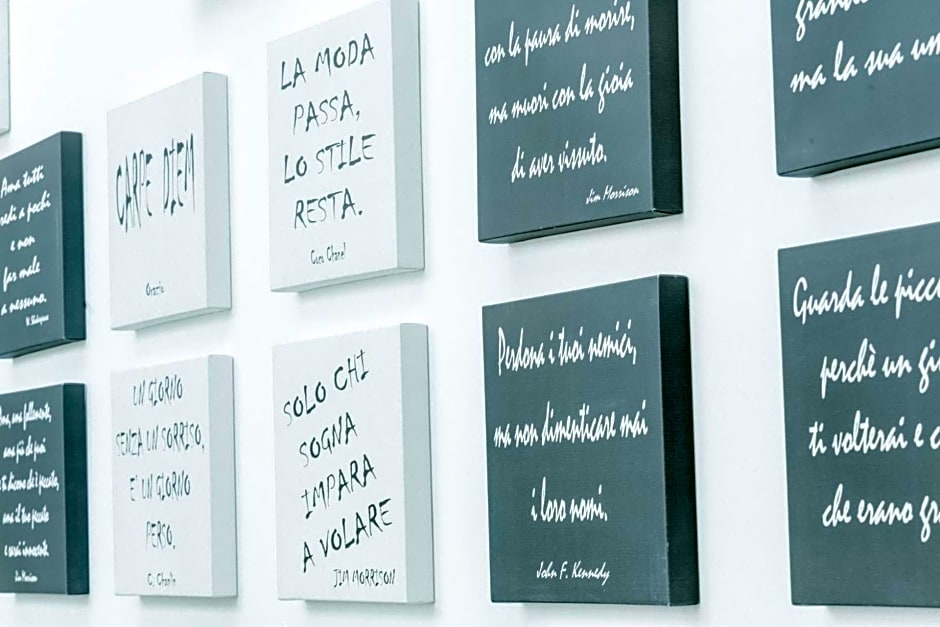 Ama tutti
credi a pochi
e non
far male
a nessuno.
W. Shakespeare
CARPE DIEM
Orazio
LA MODA
PASSA,
LO STILE
RESTA.
Coco Chanel
con la paura di morire,
ma muori con la gioia
di aver vissuto.
Jim Morrison
ma la sua
ama più che puoi
ama il tuo peccato
e sarai innocente.
Jim Morrison
UN GIORNO
SENZA UN SORRISO,
E' UN GIORNO
PERSO.
C. Chaplin
SOLO CHI
SOGNA
IMPARA
A VOLARE
JIM MORRISON
Perdona i tuoi nemici,
ma non dimenticare mai
i loro nomi.
John F. Kennedy
Guarda le picco
perchè un gi
ti volterai e
che erano gr